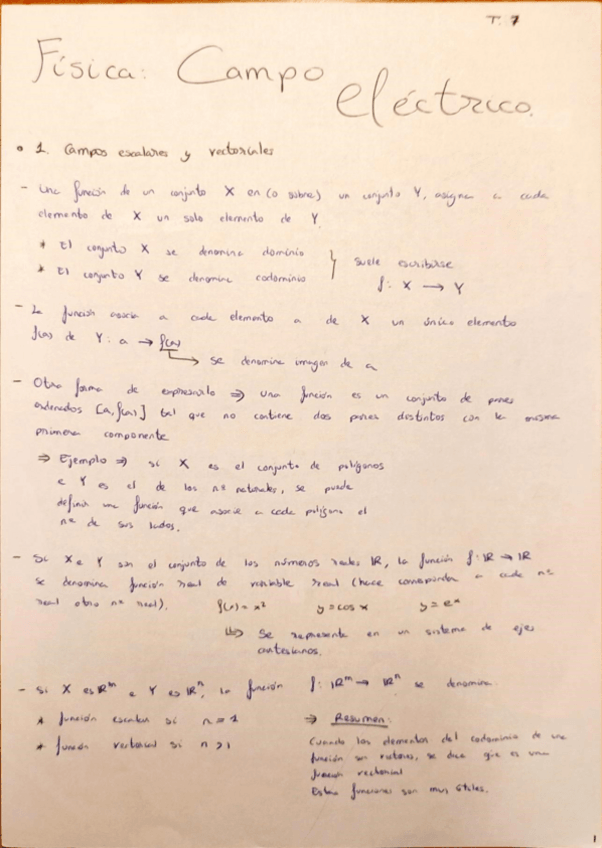 T. 7
Física: Campo eléctrico.
• 1. Campos escalares y vectoriales
- Una función de un conjunto X en (o sobre) un conjunto Y, asigna a cada
elemento de X un solo elemento de Y.
* El conjunto X se denomina dominio
* El conjunto Y se denomina codominio
} suele escribirse
f: X → Y
- La función asocia a cada elemento a de X un único elemento
f(a) de Y: a → f(a)
→ se denomina imagen de a
- Otra forma de expresarlo ⇒ una función es un conjunto de pares
ordenados [a, f(a)] tal que no contiene dos pares distintos con la misma
primera componente
⇒ Ejemplo ⇒ si X es el conjunto de polígonos
e Y es el de los nos naturales, se puede
definir una función que asocie a cada polígono el
nº de sus lados.
- Si X e Y son el conjunto de los números reales ℝ, la función f: ℝ → ℝ
se denomina función real de variable real (hace corresponder a cada nº
real otro nº real). f(x) = x² y = cos x y = eˣ
↳ Se representa en un sistema de ejes
cartesianos.
- Si X es ℝᵐ e Y es ℝⁿ, la función f: ℝᵐ → ℝⁿ se denomina:
* función escalar si n = 1
* función vectorial si n > 1
⇒ Resumen:
Cuando los elementos del codominio de una
función son vectores, se dice que es una
función vectorial
Estas funciones son muy útiles.
1